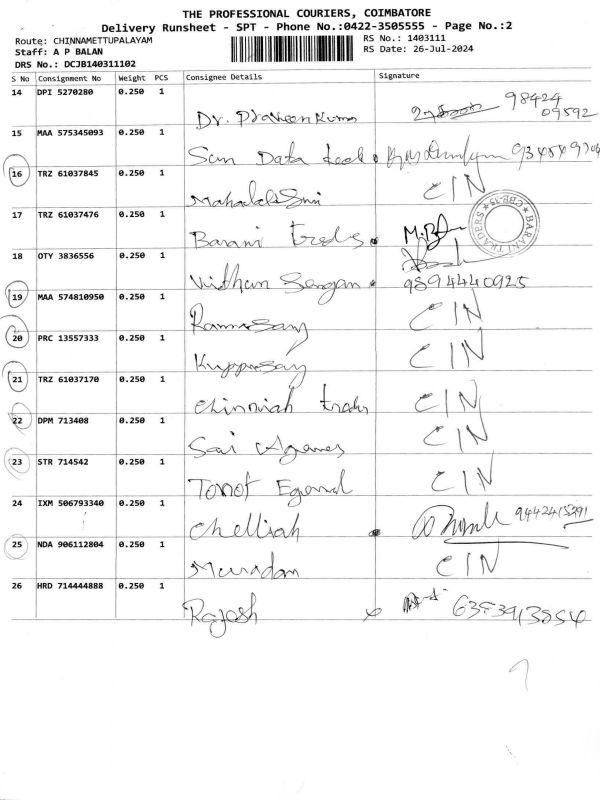 THE PROFESSIONAL COURIERS, COIMBATORE
Delivery Runsheet - SPT - Phone No.:0422-3505555 - Page No.:2
Route: CHINNAMETTUPALAYAM RS No.: 1403111
Staff: A P BALAN RS Date: 26-Jul-2024
DRS No.: DCJB140311102
S No Consignment No Weight PCS Consignee Details Signature
14 DPI 5270280 0.250 1
Dr. Praveen Kumar 98424
09592
15 MAA 575345093 0.250 1
Sun Data
16 TRZ 61037845 0.250 1 CIN
17 TRZ 61037476 0.250 1
Barani BARANI TRADERS
18 OTY 3836556 0.250 1
9894440925
19 MAA 574810950 0.250 1
CIN
20 PRC 13557333 0.250 1
CIN
21 TRZ 61037170 0.250 1
CIN
22 DPM 713408 0.250 1
Sai CIN
23 STR 714542 0.250 1
CIN
24 IXM 506793340 0.250 1
Chelliah
25 NDA 906112804 0.250 1
CIN
26 HRD 714444888 0.250 1
Rajesh